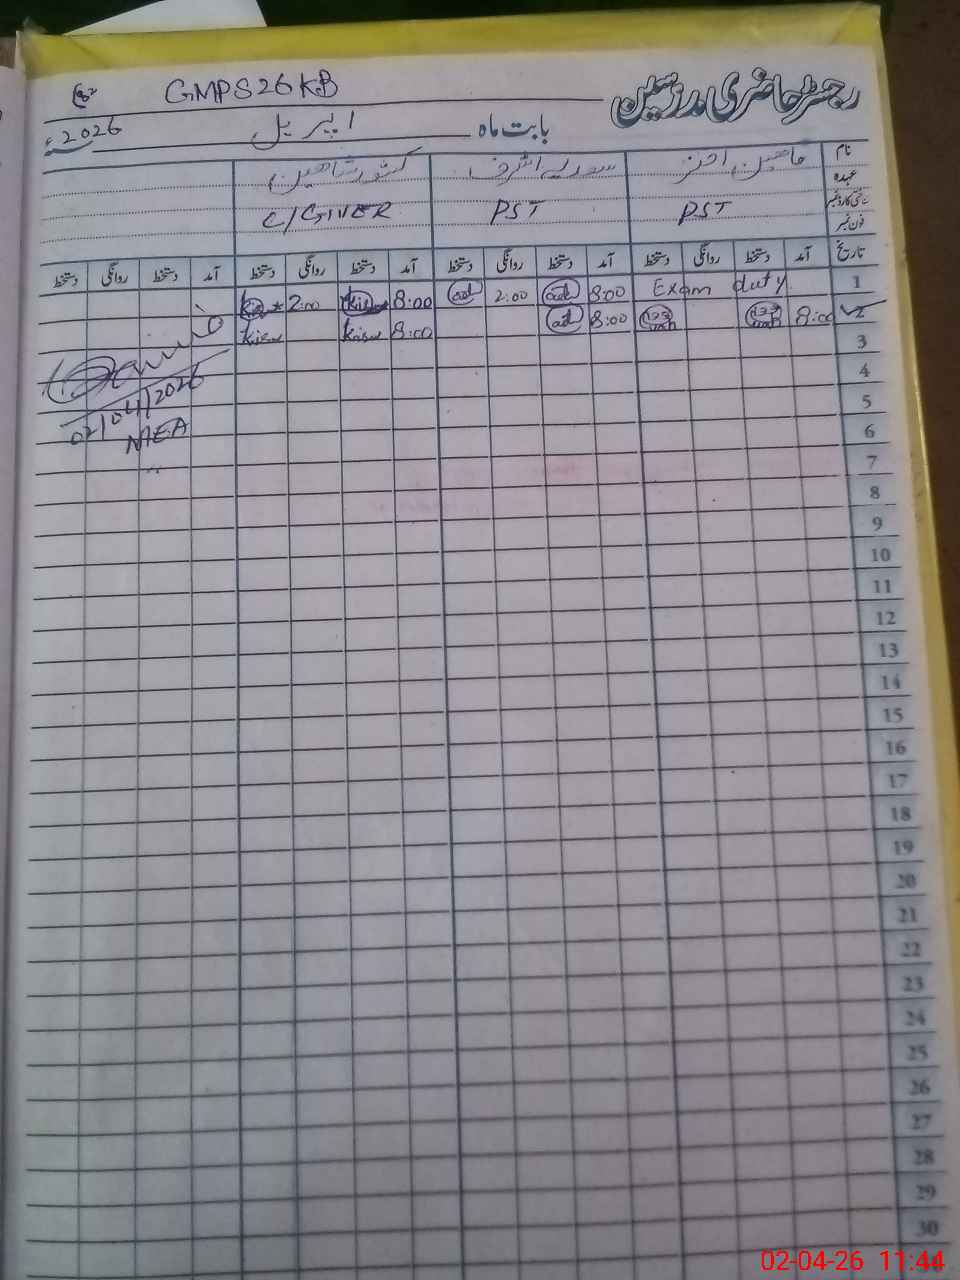 رجسٹر حاضری مدرسین
GMPS 26 KB
بابت ماہ اپریل 2026ء
نام
عہدہ
شناختی کارڈ نمبر
فون نمبر
کشور شاہین
PST PST C/GIVER
تاریخ آمد دستخط روانگی دستخط آمد دستخط روانگی دستخط آمد دستخط روانگی دستخط آمد دستخط روانگی دستخط
1 Exam duty 8:00 2:00 8:00 2:00
2 8:00 8:00 8:00
3
02/04/2026
4
MEA
5
6
7
8
9
10
11
12
13
14
15
16
17
18
19
20
21
22
23
24
25
26
27
28
29
30
02-04-26 11:44